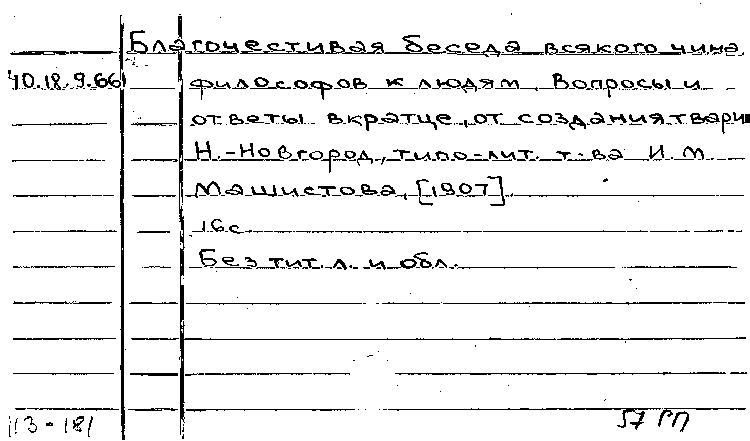 Благочестивая беседа всякого чина
40.18.9.66
философов к людям. Вопросы и
ответы вкратце, от создания твари
Н.-Новгород, типо-лит. т-ва И.М.
Машистова, [1907].
16с.
Без тит. л. и обл.
113-181
57 РП